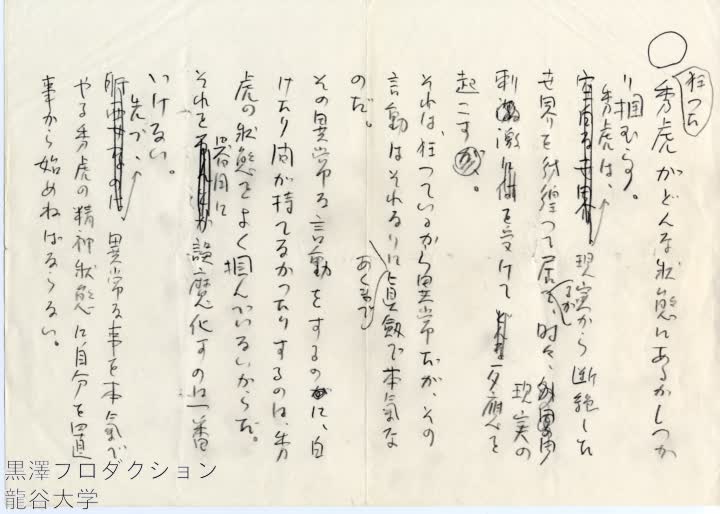 狂った
秀虎がどんな状態にあるかしっか
り掴むらる。
秀虎は、現実から断絶した
世界を彷徨って居て、時々、現実の
刺激を受けて反応を
起こす。
それは、狂っているから異常だが、その
言動はそれなりにあくまで真剣で本気な
のだ。
その異常な言動をするのに、自
けたり間が持てなかったりするのは、秀
虎の状態をよく掴んでいないからだ。
それを器用に誤魔化すのは一番
いけない。
先づ、異常な事を本気で
やる秀虎の精神状態に自分を置
事から始めねばならない。
黒澤プロダクション
龍谷大学